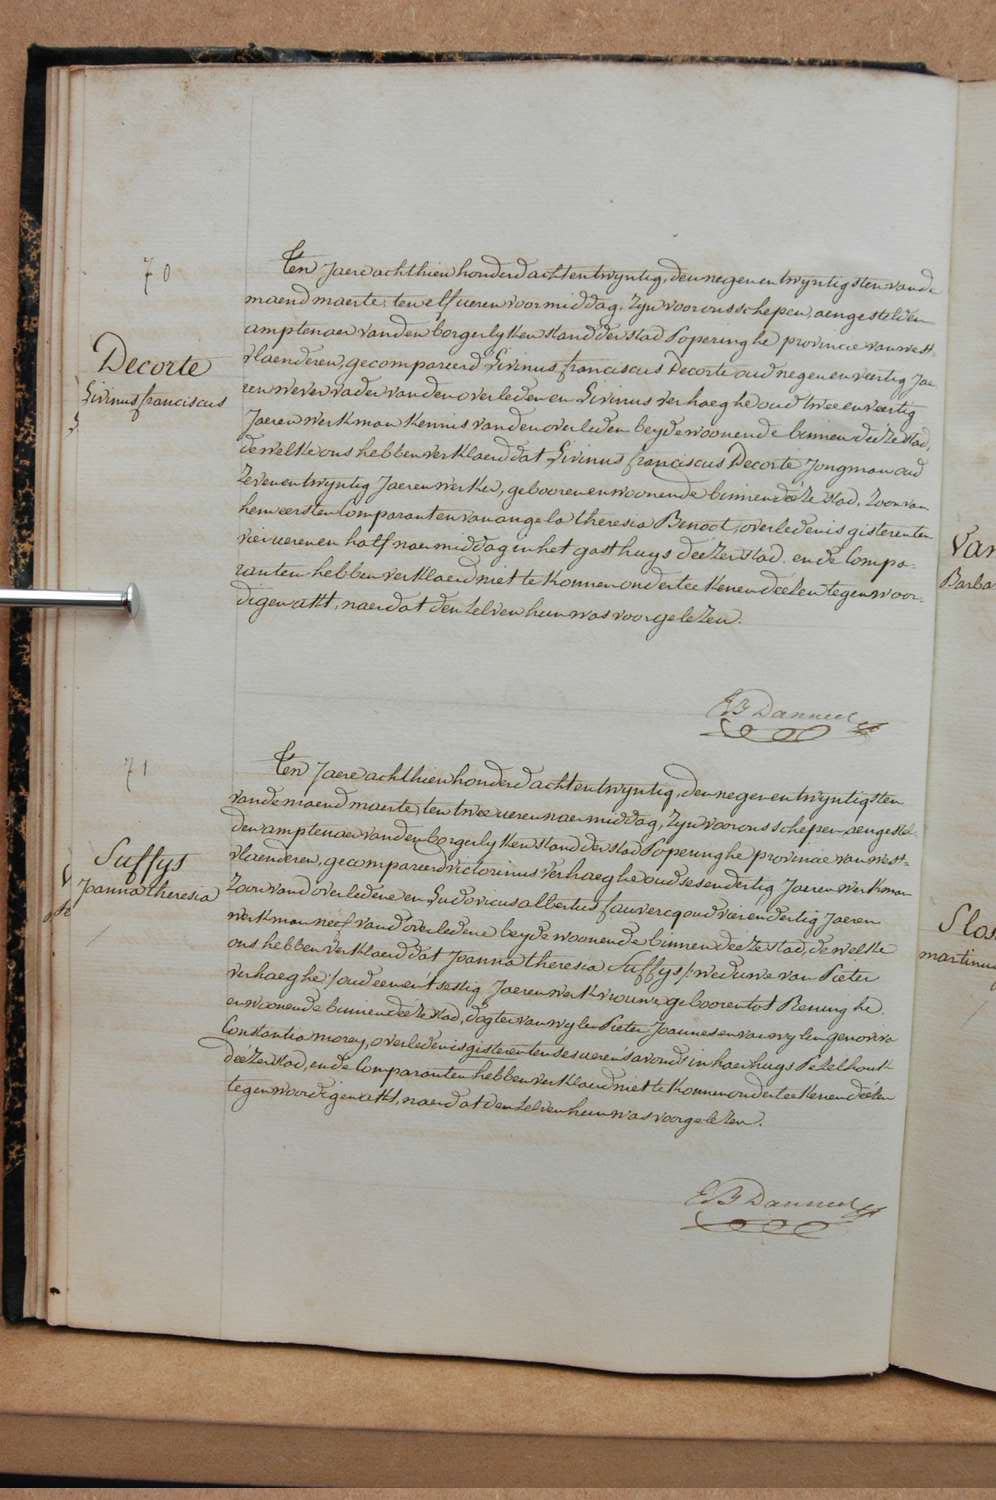 70
Decorte
Livinus franciscus
Ten Jaere achthien honderd acht en twyntig, den negen en twyntigsten van de
maend maerte, ten elf ueren voormiddag, zyn voor ons schepen, aengestelden
amptenaer van den borgerlyken stand der stad Poperinghe provincie van west-
vlaenderen, gecompareerd Livinus franciscus Decorte oud negen en veertig Jae
ren wever vader van den overleden en Livinus verhaeghe oud twee en veertig
Jaeren werkman kennis van den overleden beyde woonende binnen deeze stad,
dewelke ons hebben verklaerd dat Livinus franciscus Decorte Jongman oud
zeven en twyntig Jaeren werker, gebooren en woonende binnen deéze stad, zoon van
hem eersten Comparant en van angela theresia Benoot, overleden is gisteren ten
vier ueren en half naermiddag in het gasthuys deézer stad, en de Compa-
ranten hebben verklaerd niet te konnen onderteekenen deézen tegenwoor-
digen akt, naer dat den zelven hun was voorgelezen.
EB Danneel
71
Suffys
Joanna theresia
Ten Jaere achthien honderd acht en twyntig, den negen en twyntigsten
van de maend maerte, ten twee ueren naermiddag, zyn voor ons schepen, aengestel-
den amptenaer van den borgerlyken stand der stad Poperinghe provincie van west=
vlaenderen, gecompareerd victorinus verhaeghe oud ses en dertig Jaeren werkman
zoon vand overledene en Ludovicus albertus fauvercq oud vier en dertig Jaeren
werkman neef vand overledene beyde woonende binnen deéze stad, dewelke
ons hebben verklaerd dat Joanna theresia Suffys /: weduwe van Pieter
verhaeghe :/ oud een en t'sestig Jaeren werkvrouw, gebooren tot Reninghe
en woonende binnen deéze stad, dogter van wylen Pieter Joannes en van wylen genoviva
Constantia morey, overleden is gisteren ten ses ueren s'avonds in haer huys Pezelhoek
deézer stad, en de Comparanten hebben verklaerd niet te konnen onderteekenen deézen
tegenwoordigen akt, naer dat den zelven hun was voorgelezen.
EB Danneel
Van
Barba
Slos
martinus